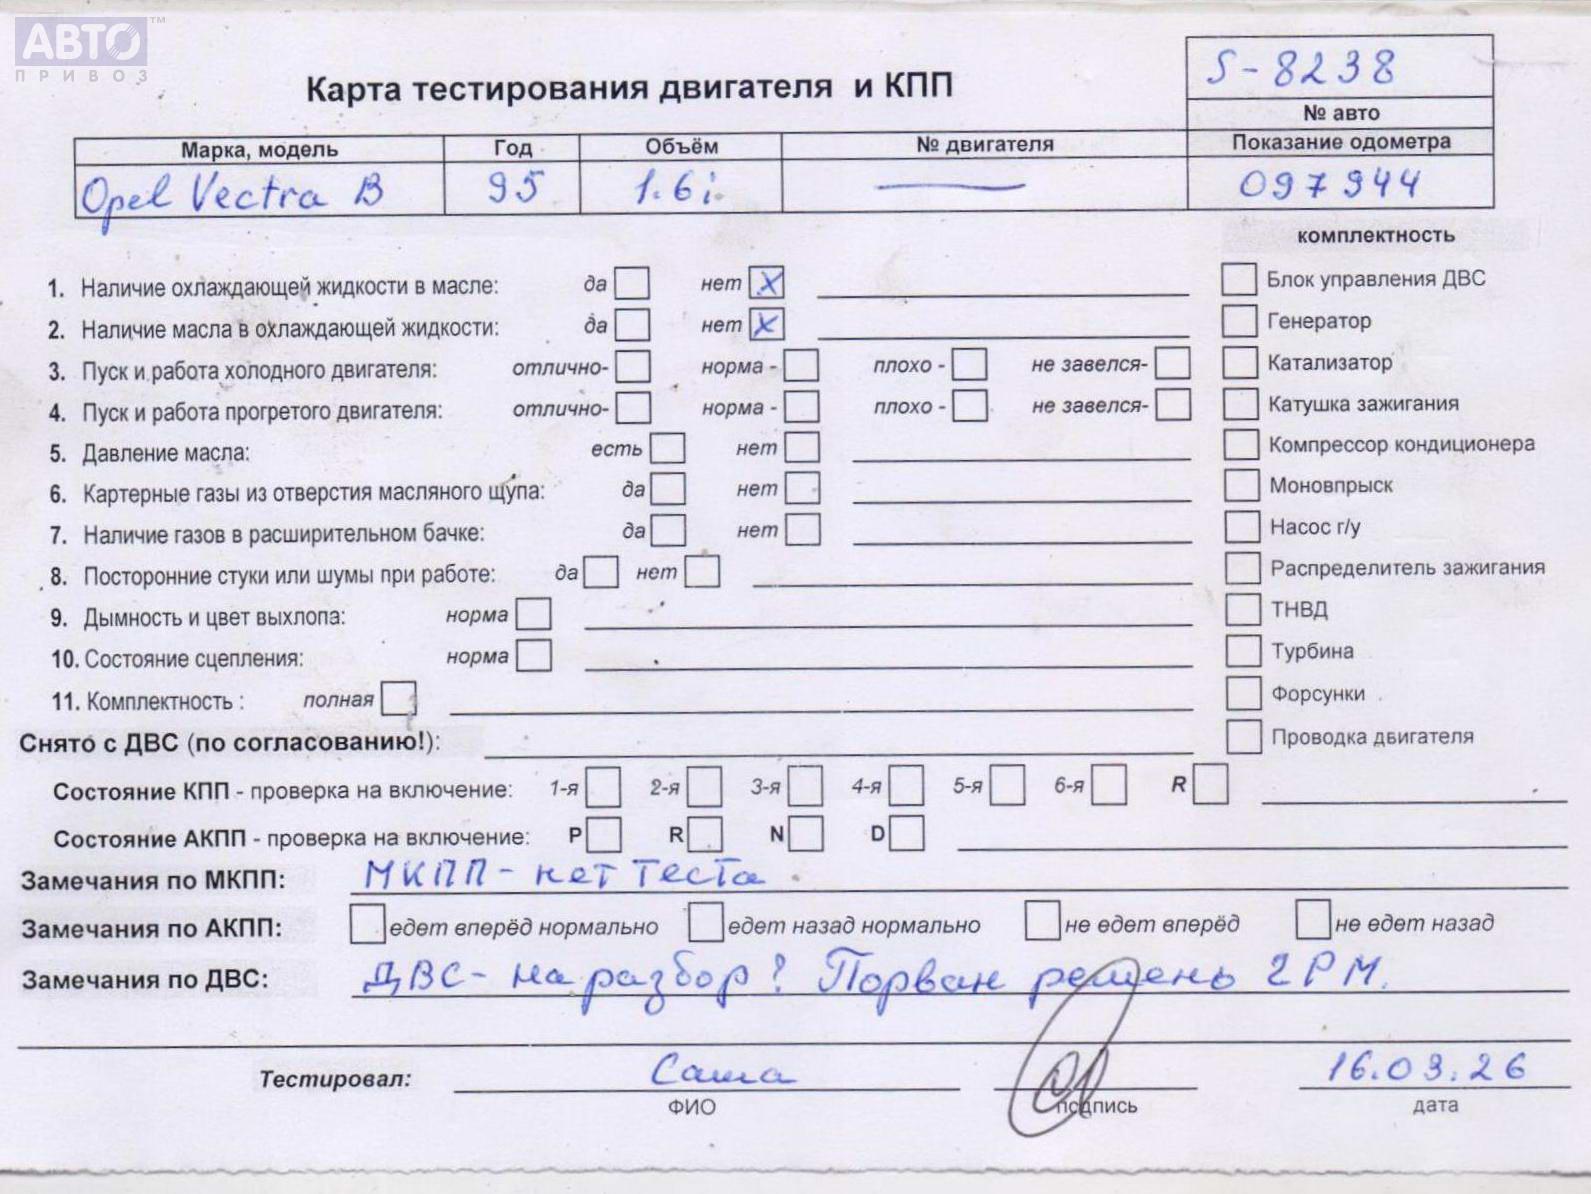 АВТО™
ПРИВОЗ
Карта тестирования двигателя и КПП
S-8238
№ авто
Марка, модель Год Объём № двигателя Показание одометра
Opel Vectra B 95 1.6i — 097944
комплектность
1. Наличие охлаждающей жидкости в масле: да нет X Блок управления ДВС
2. Наличие масла в охлаждающей жидкости: да нет X Генератор
3. Пуск и работа холодного двигателя: отлично- норма - плохо - не завелся- Катализатор
4. Пуск и работа прогретого двигателя: отлично- норма - плохо - не завелся- Катушка зажигания
5. Давление масла: есть нет Компрессор кондиционера
6. Картерные газы из отверстия масляного щупа: да нет Моновпрыск
7. Наличие газов в расширительном бачке: да нет Насос г/у
8. Посторонние стуки или шумы при работе: да нет Распределитель зажигания
9. Дымность и цвет выхлопа: норма ТНВД
10. Состояние сцепления: норма Турбина
11. Комплектность : полная Форсунки
Снято с ДВС (по согласованию!): Проводка двигателя
Состояние КПП - проверка на включение: 1-я 2-я 3-я 4-я 5-я 6-я R
Состояние АКПП - проверка на включение: P R N D
Замечания по МКПП: МКПП - нет теста
Замечания по АКПП: едет вперёд нормально едет назад нормально не едет вперёд не едет назад
Замечания по ДВС: ДВС - на разбор! Порван ремень ГРМ.
Тестировал: Саша 16.03.26
ФИО подпись дата